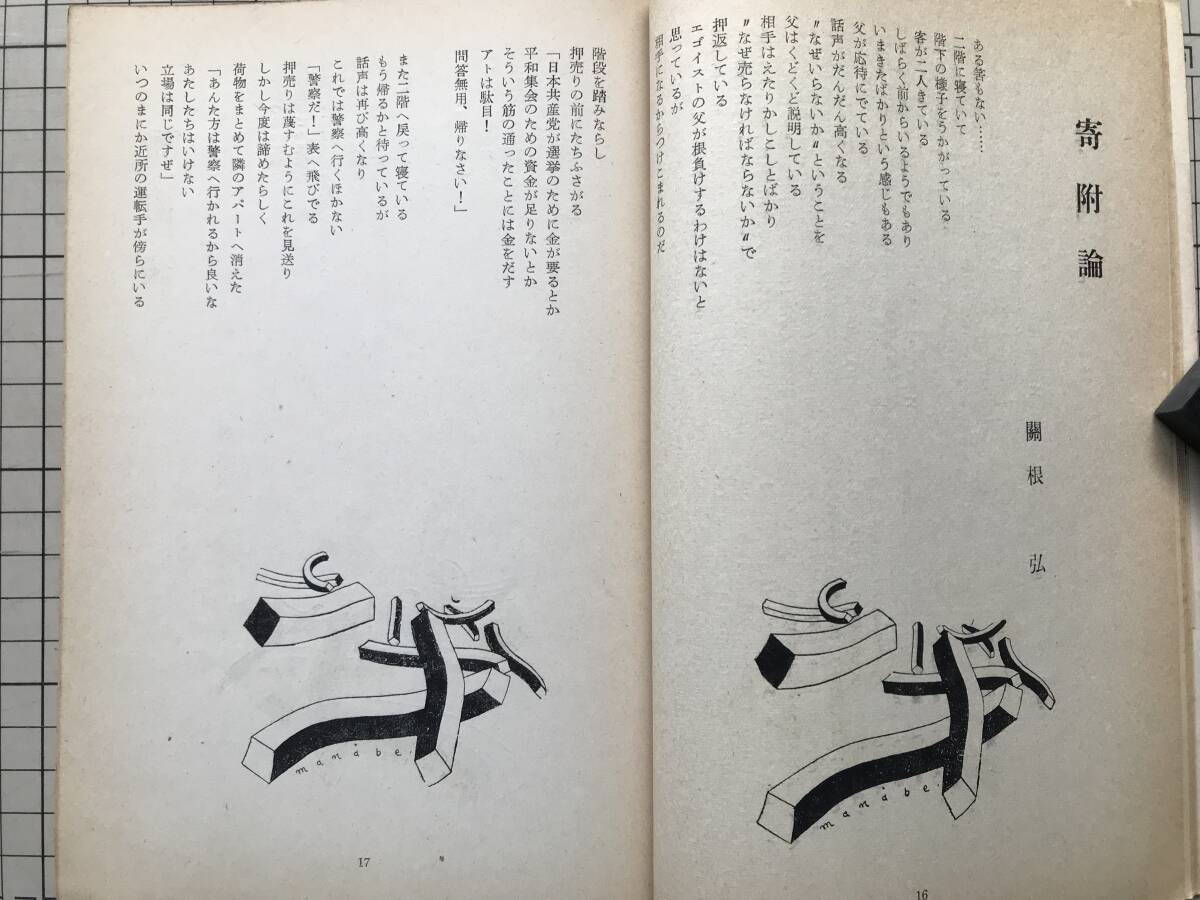 寄附論
關根 弘
ある筈もない……
二階に寝ていて
階下の様子をうかがっている
客が二人きている
しばらく前からいるようでもあり
いまきたばかりという感じもある
父が応待にでている
話声がだんだん高くなる
〝なぜいらないか〟ということを
父はくどくど説明している
相手はえたりかしこしとばかり
〝なぜ売らなければならないか〟で
押返している
エゴイストの父が根負けするわけはないと
思っているが
相手になるからつけこまれるのだ
manabe
16
階段を踏みならし
押売りの前にたちふさがる
「日本共産党が選挙のために金が要るとか
平和集会のための資金が足りないとか
そういう筋の通ったことには金をだす
アトは駄目!
問答無用、帰りなさい!」
また二階へ戻って寝ている
もう帰るかと待っているが
話声は再び高くなり
これでは警察へ行くほかない
「警察だ!」表へ飛びでる
押売りは蔑すむようにこれを見送り
しかし今度は諦めたらしく
荷物をまとめて隣のアパートへ消えた
「あんた方は警察へ行かれるから良いな
あたしたちはいけない
立場は同じですぜ」
いつのまにか近所の運転手が傍らにいる
manabe
17